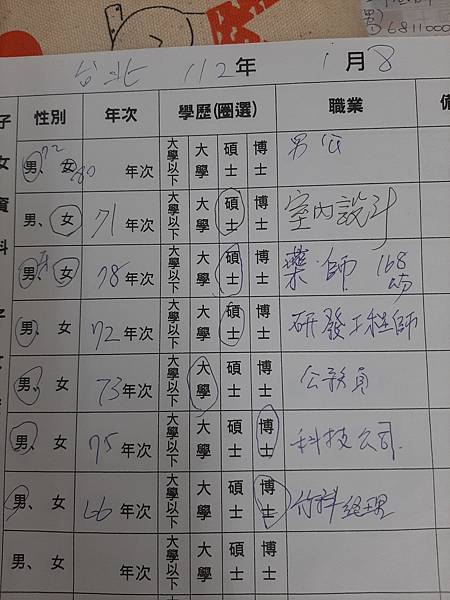 男) 6811000
台北 112年 1月8
性別 年次 學歷(圈選) 職業 備
子女資料
男、女 72 80 年次 大學以下 大學 碩士 博士 男 公
男、女 71 年次 大學以下 大學 碩士 博士 室內設計
男、女 78 年次 大學以下 大學 碩士 博士 藥師 168
男、女 72 年次 大學以下 大學 碩士 博士 研發工程師
男、女 73 年次 大學以下 大學 碩士 博士 公務員
男、女 75 年次 大學以下 大學 碩士 博士 科技公司.
男、女 66 年次 大學以下 大學 碩士 博士 竹科經理
男、女 年次 大學以下 大學 碩士 博士